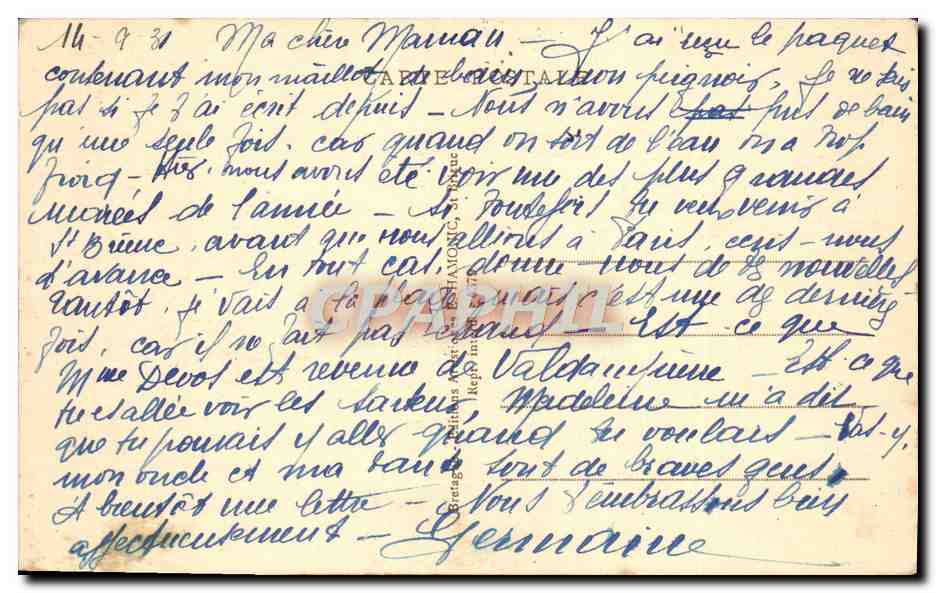 14-9 31 Ma chère Maman — J'ai reçu le paquet
contenant mon maillot de bain, mon peignoir, Je ne sais
pas si je t'ai écrit depuis — Nous n'avons pas pris de bain
qu'une seule fois, car quand on sort de l'eau on a trop
froid — Hier, nous avons été voir une des plus grandes
marées de l'année — Si toutefois tu veux venir à
St Brieuc, avant que nous allions à Paris, écris-nous
d'avance — En tout cas, donne nous de tes nouvelles
Tantôt, je vais à la plage mais c'est une des dernière
fois, car il ne fait pas chaud — Est ce que
Mme Devos est revenue de — Est ce que
tu es allée voir les Madeleine m'a dit
que tu pouvais y aller quand tu voulais — Vas-y,
mon oncle et ma tante sont de braves gens.
A bientôt une lettre — Nous t'embrassons bien
affectueusement — Germaine
CARTE POSTALE
Bretagne - Editions Artistiques HAMONIC, St-Brieuc
Repr. interdite
CPAPHIL